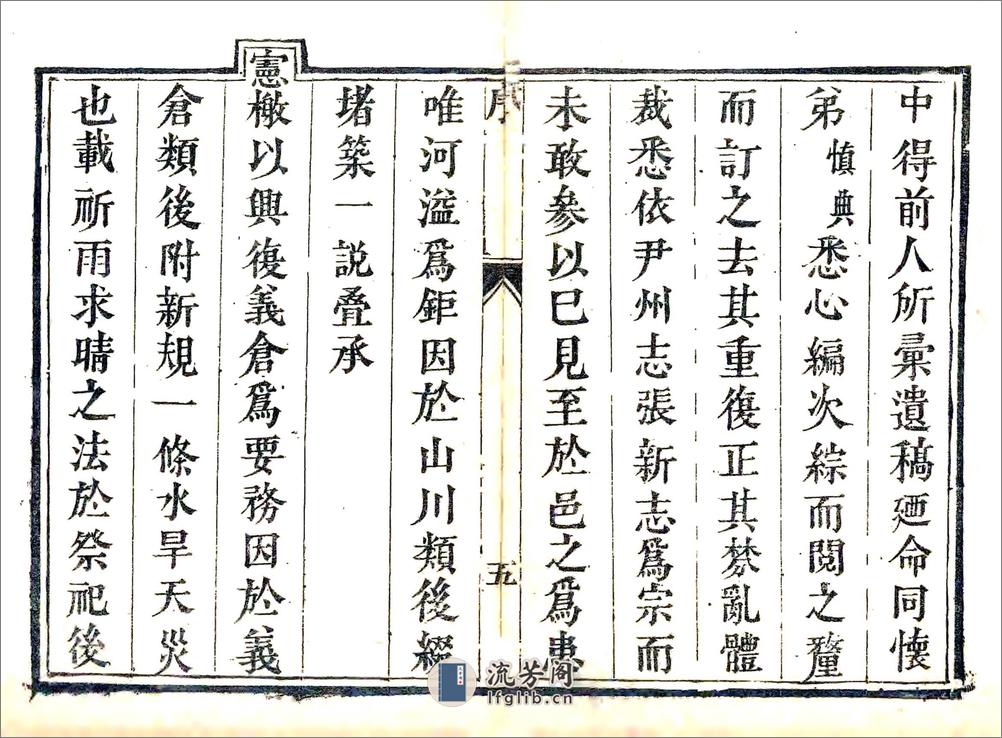 中得前人所彚遺稿廼命同懷
弟慎典悉心編次綜而閱之釐
而訂之去其重復正其棼亂體
裁悉依尹州志張新志爲宗而
未敢參以已見至於邑之爲患
序
五
唯河溢爲鉅因於山川類後綴
堵築一說叠承
憲檄以興復義倉爲要務因於義
倉類後附新規一條水旱天災
也載祈雨求晴之法於祭祀後
流芳阁
lfglib.cn